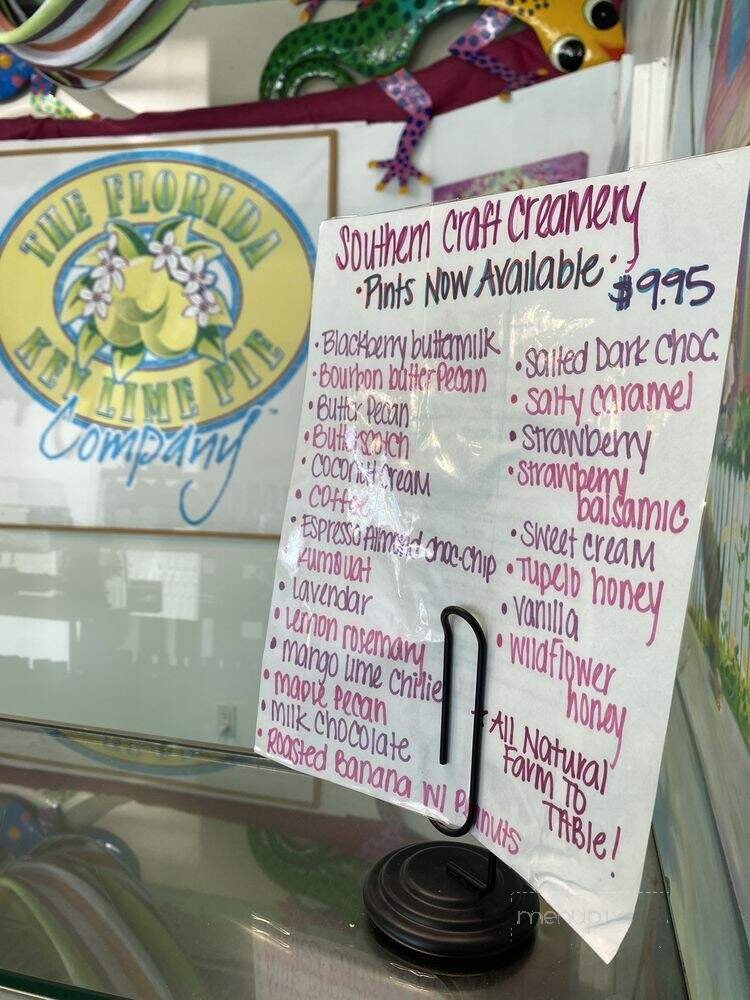 THE FLORIDA
KEY LIME PIE
Company
Southern Craft Creamery
· Pints Now Available ·
$9.95
· Blackberry buttermilk
· Bourbon butter Pecan
· Butter Pecan
· Butterscotch
· Coconut Cream
· Coffee
· Espresso Almond choc-chip
· Kumquat
· Lavendar
· Lemon rosemary
· mango lime chilie
· maple pecan
· milk chocolate
· Roasted Banana W/ Peanuts
· Salted Dark choc
· salty caramel
· strawberry
· strawberry
balsamic
· sweet cream
· Tupelo honey
· vanilla
· wildflower
honey
* All Natural
Farm To
TABle!
menupix